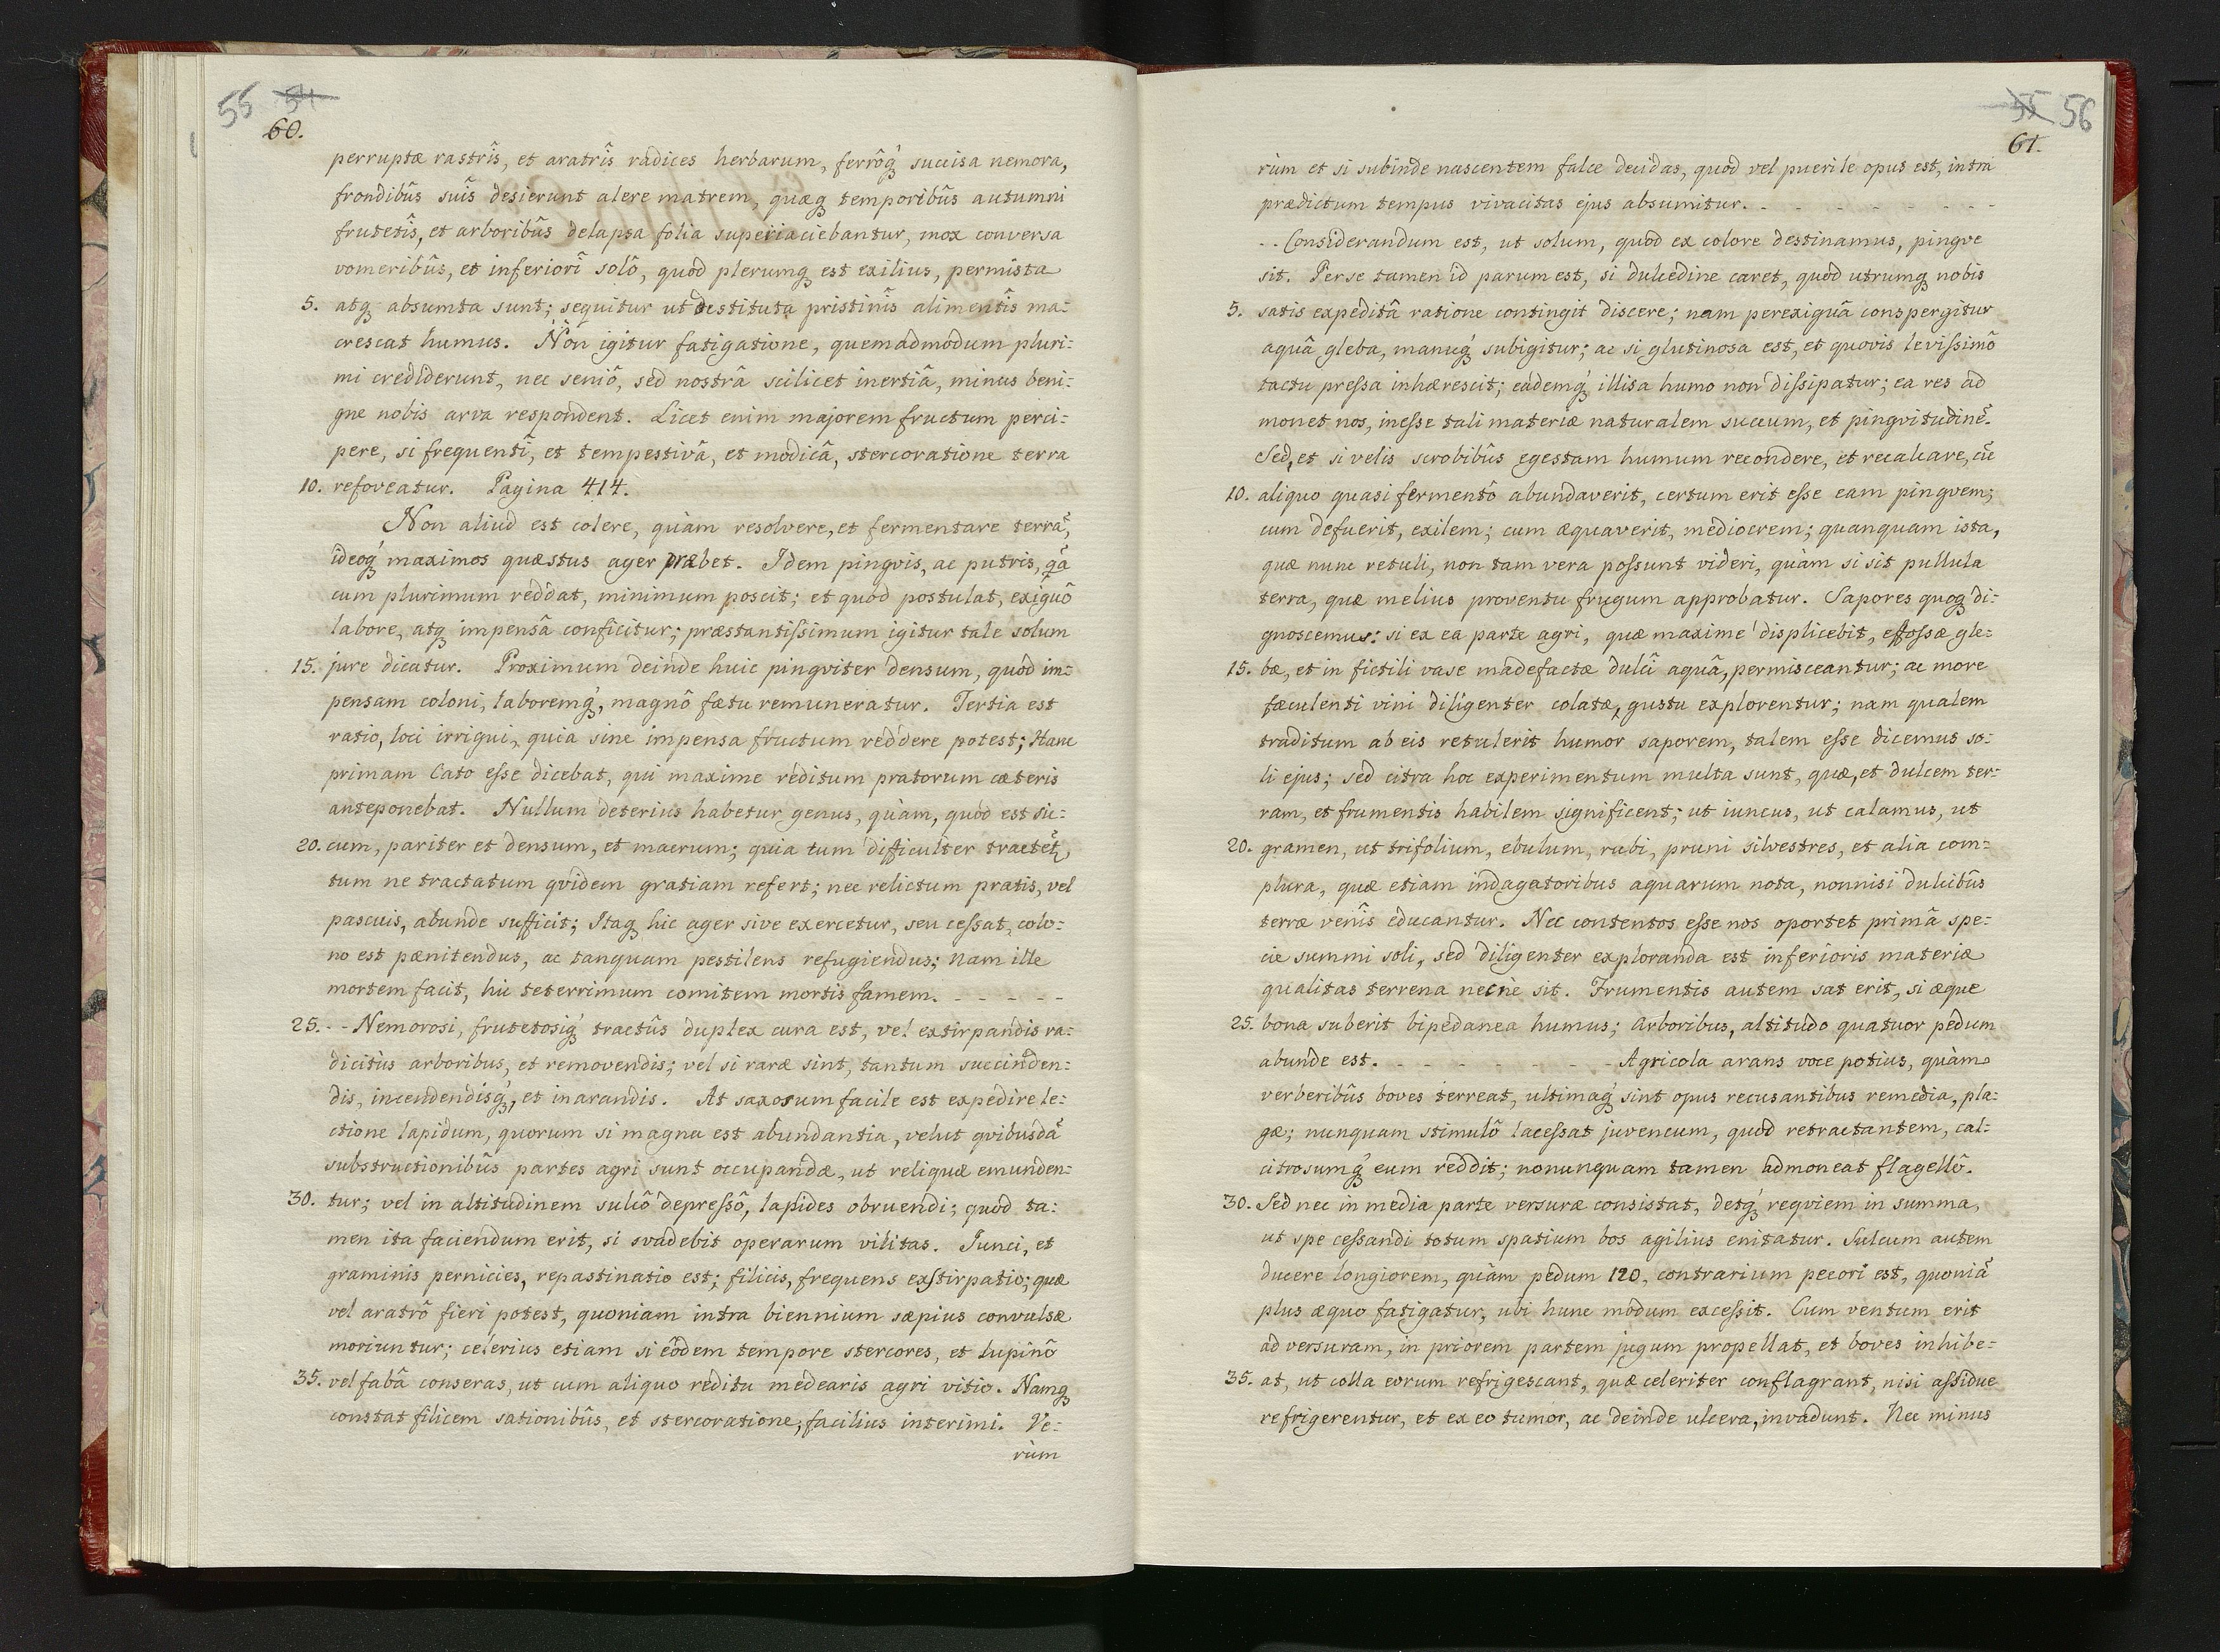 55 54
60.
perruptæ rastrîs, et aratrîs radices herbarum, ferrôq́ succisa nemora,
frondibûs suîs desierunt alere matrem, quæq temporibûs autumni
frutetîs, et arboribûs delapsa folia superiaciebantur, mox conversa
vomeribûs, et inferiorî solô, quod plerumq est exilius, permista
5. atq absumta sunt; sequitur ut destituta pristinîs alimentîs ma:
crescat humus. Non igitur fatigatione, quemadmodum pluri:
mi crediderunt, nec seniô, sed nostrâ scilicet inertiâ, minus beni:
gne nobis arva respondent. Licet enim majorem fructum perci:
pere, si frequentî, et tempestivâ, et modicâ, stercoratione terra
10. refoveatur. Pagina 414.
Non aliud est colere, quàm resolvere, et fermentare terrā,
ideoq́ maximos quæstus ager præbet. Idem pingvis, ac putris, qā
cum plurimum reddat, minimum poscit; et quod postulat, exiguô
labore, atq impensâ conficitur; præstantissimum igitur tale solum
15. jure dicatur. Proximum deinde huic pingviter densum, quod im:
pensam coloni, laboremq́, magnô fætu remuneratur. Tertia est
ratio, loci irrigui, quia sine impensa fructum reddere potest; Hanc
primam Cato esse dicebat, qui maxime reditum pratorum cæteris
anteponebat. Nullum deterius habetur genus, quàm, quod est sic:
20. cum, pariter et densum, et macrum; quia tum difficulter tractet,
tum ne tractatum qvidem gratiam refert; nec relictum pratis, vel
pascuis, abunde sufficit; Itaq hic ager sive exercetur, seu cessat, colo:
no est pænitendus, ac tanquam pestilens refugiendus; Nam ille
mortem facit, hic teterrimum comitem mortis famem. - - - - -
25. - - Nemorosi, frutetosiq́ tractûs duplex cura est, vel extirpandis ra:
dicitùs arboribus, et removendis; vel si raræ sint, tantum succinden:
dis, incendendisq́, et inarandis. At saxosum facile est expedire le:
ctione lapidum, quorum si magna est abundantia, velut qvibusdā
substructionibûs partes agri sunt occupandæ, ut reliquæ emunden:
30. tur; vel in altitudinem sulcô depressô, lapides obruendi; quod ta:
men ita faciendum erit, si svadebit operarum vilitas. Junci, et
graminis pernicies, repastinatio est; filicis, frequens exstirpatio; quæ
vel aratrô fieri potest, quoniam intra biennium sæpius convulsæ
moriuntur; celerius etiam si eôdem tempore stercores, et lupinô
35. vel fabâ conseras, ut cum aliquo reditu medearis agri vitio. Namq
constat filicem sationibûs, et stercoratione, facilius interimi. Ve:
rùm
55 56
61.
rùm et si subinde nascentem falce decidas, quod vel puerile opus est, intra
prædictum tempus vivacitas ejus absumitur. - - - - - - - -
- - Considerandum est, ut solum, quod ex colore destinamus, pingve
sit. Per se tamen id parum est, si dulcedine caret, quod utrumq nobis
5. satis expeditâ ratione contingit discere; nam perexiguâ conspergitur
aquâ gleba, manuq́ subigitur; ac si glutinosa est, et quovis levissimô
tactu pressa inhærescit; eademq́ illisa humo non dissipatur; ea res ad
monet nos, inesse tali materiæ naturalem succum, et pingvitudinē.
Sed, et si velis scrobibûs egestam humum recondere, et recalcare, cū
10. aliquo quasi fermentô abundaverit, certum erit esse eam pingvem;
cum defuerit, exilem; cum æquaverit, mediocrem; quanquam ista,
quæ nunc retuli, non tam vera possunt videri, quàm si sit pullula
terra, quæ melius proventu frugum approbatur. Sapores quoq di:
gnoscemus: si ex ea parte agri, quæ maxime displicebit, effossæ gle:
15. bæ, et in fictili vase madefactæ dulcî aquâ, permisceantur; ac more
fæculenti vini diligenter colatæ, gustu explorentur; nam qualem
traditum ab eis retulerit humor saporem, talem esse dicemus so:
li ejus; sed citra hoc experimentum multa sunt, quæ, et dulcem ter:
ram, et frumentis habilem significent; ut iuncus, ut calamus, ut
20. gramen, ut trifolium, ebulum, rubi, pruni silvestres, et alia com:
plura, quæ etiam indagatoribus aquarum nota, nonnisi dulcibûs
terræ venîs educantur. Nec contentos esse nos oportet primâ spe:
cie summi soli, sed diligenter exploranda est inferioris materiæ
qualitas terrena necne sit. Frumentis autem sat erit, si æque
25. bona suberit bipedanea humus; Arboribus, altitudo quatuor pedum
abunde est. - - - - - - - - Agricola arans voce potius, quàm
verberibûs boves terreat, ultimaq́ sint opus recusantibus remedia, pla:
gæ; nunquam stimulô lacessat juvencum, quod retractantem, cal:
citrosumq́ eum reddit; nonunquam tamen admoneat flagellô.
30. Sed nec in media parte versuræ consistat, detq́ reqviem in summa,
ut spe cessandi totum spatium bos agilius enitatur. Sulcum autem
ducere longiorem, quàm pedum 120, contrarium pecori est, quoniā
plus æquo fatigatur, ubi hunc modum excessit. Cum ventum erit
ad versuram, in priorem partem jugum propellat, et boves inhibe:
35. at, ut colla eorum refrigescant, quæ celeriter conflagrant, nisi assidue
refrigerentur, et ex eo tumor, ac deinde ulcera, invadunt. Nec minus